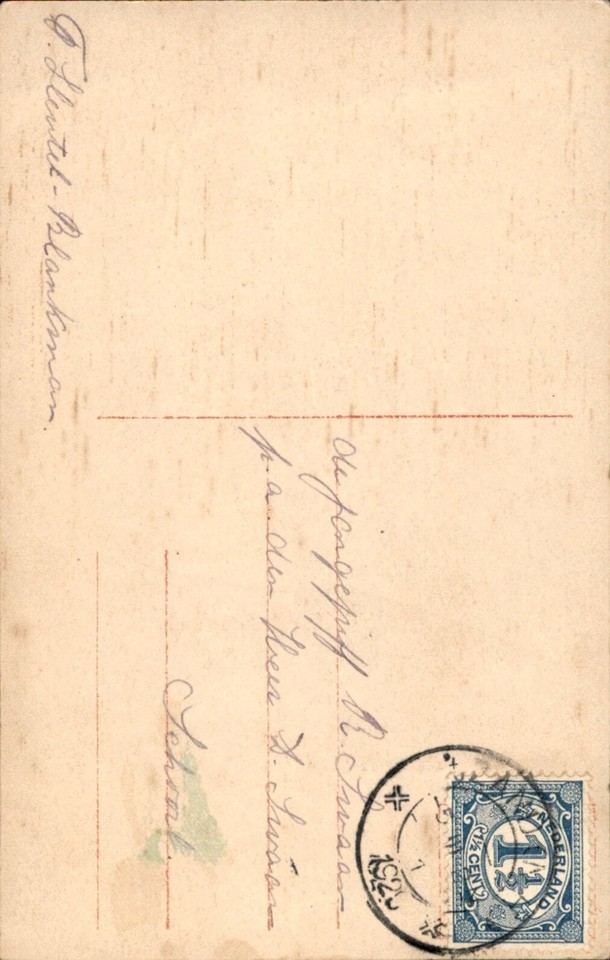 F. Sleutel-Blankman.
de jongejuff R. Swaan
p. a. den Heer D. Swaan
Schoorl.
NEDERLAND
1½
1½ CENT
192